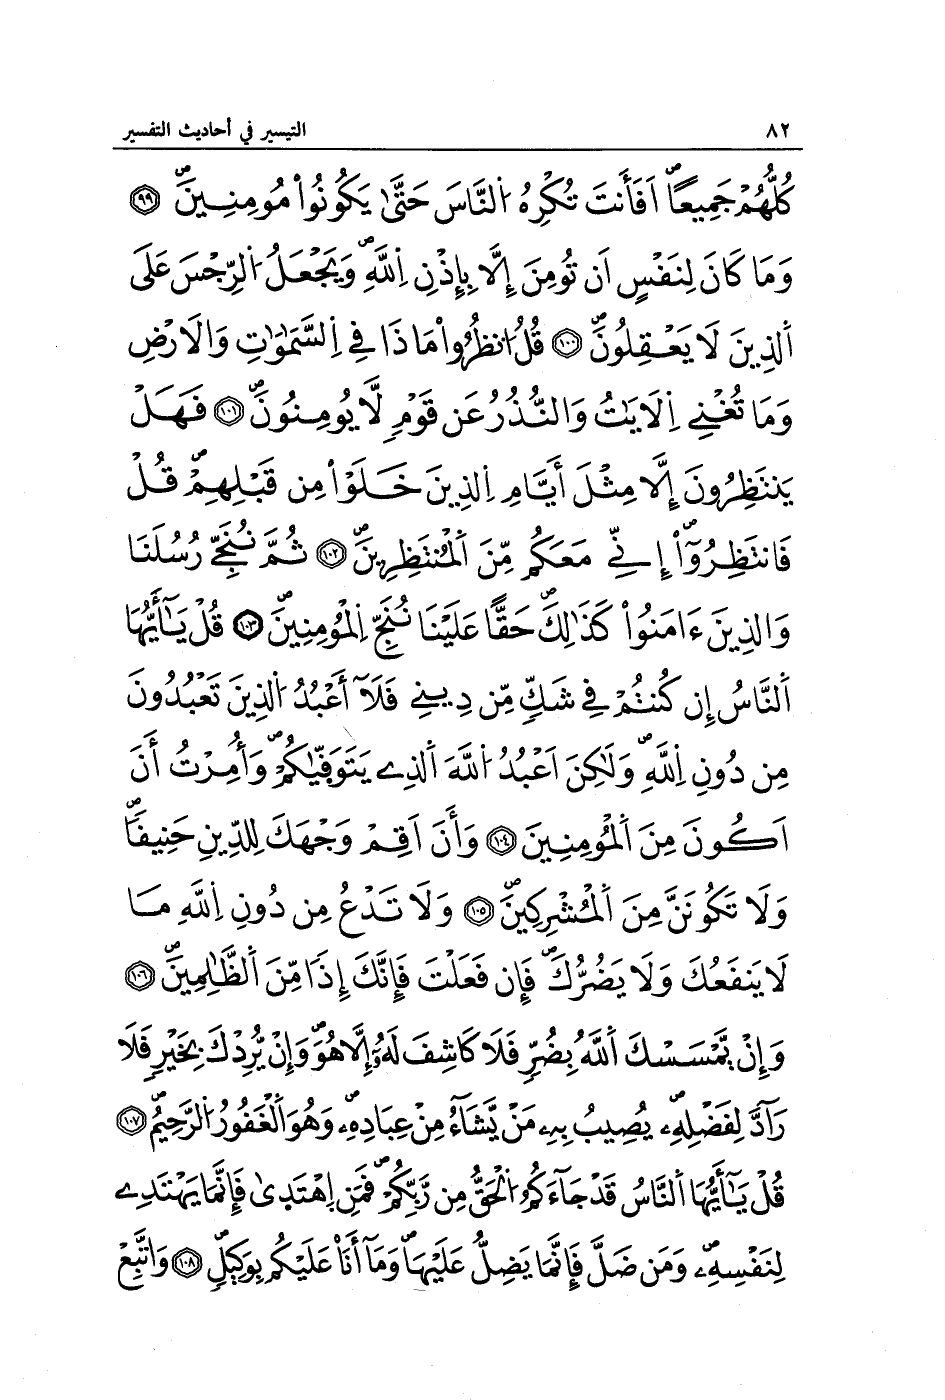 ٨٢ التيسير في أحاديث التفسير
كُلُّهُمْ جَمِيعاًۖ اَفَأَنتَ تُكْرِهُ اُ۬لنَّاسَ حَتَّىٰ يَكُونُواْ مُومِنِينَۖ ٩٩
وَمَا كَانَ لِنَفْسٍ اَن تُومِنَ إِلَّا بِإِذْنِ اِ۬للَّهِۖ وَيَجْعَلُ اُ۬لرِّجْسَ عَلَى
اَ۬لذِينَ لَا يَعْقِلُونَۖ ١٠٠ قُلُ اُ۟نظُرُواْ مَاذَا فِي اِ۬لسَّمَٰوَٰتِ وَالَارْضِ
وَمَا تُغْنِے اِ۬لَايَٰتُ وَالنُّذُرُ عَن قَوْمٍ لَّا يُومِنُونَۖ ١٠١ فَهَلْ
يَنتَظِرُونَ إِلَّا مِثْلَ أَيَّامِ اِ۬لذِينَ خَلَوْاْ مِن قَبْلِهِمْۖ قُلْ
فَانتَظِرُوٓاْۖ إِنِّے مَعَكُم مِّنَ اَ۬لْمُنتَظِرِينَۖ ١٠٢ ثُمَّ نُنَجِّے رُسُلَنَا
وَالذِينَ ءَامَنُواْ كَذَٰلِكَۖ حَقّاً عَلَيْنَا نُنَجِّ اِ۬لْمُومِنِينَۖ ١٠٣ قُلْ يَٰٓأَيُّهَا
اَ۬لنَّاسُ إِن كُنتُمْ فِے شَكٍّ مِّن دِينِے فَلَآ أَعْبُدُ اُ۬لذِينَ تَعْبُدُونَ
مِن دُونِ اِ۬للَّهِۖ وَلَٰكِنَ اَعْبُدُ اُ۬للَّهَ اَ۬لذِے يَتَوَفَّيٰكُمْۖ وَأُمِرْتُ أَنَ
اَكُونَ مِنَ اَ۬لْمُومِنِينَ ١٠٤ وَأَنَ اَقِمْ وَجْهَكَ لِلدِّينِ حَنِيفاًۖ
وَلَا تَكُونَنَّ مِنَ اَ۬لْمُشْرِكِينَۖ ١٠٥ وَلَا تَدْعُ مِن دُونِ اِ۬للَّهِ مَا
لَا يَنفَعُكَ وَلَا يَضُرُّكَۖ فَإِن فَعَلْتَ فَإِنَّكَ إِذاً مِّنَ اَ۬لظَّٰلِمِينَۖ ١٠٦
وَإِنْ يَّمْسَسْكَ اَ۬للَّهُ بِضُرٍّ فَلَا كَاشِفَ لَهُۥٓ إِلَّا هُوَۖ وَإِنْ يُّرِدْكَ بِخَيْرٍ فَلَا
رَآدَّ لِفَضْلِهِۦۖ يُصِيبُ بِهِۦ مَنْ يَّشَآءُ مِنْ عِبَادِهِۦۖ وَهُوَ اَ۬لْغَفُورُ اُ۬لرَّحِيمُۖ ١٠٧
قُلْ يَٰٓأَيُّهَا اَ۬لنَّاسُ قَدْ جَآءَكُمُ اُ۬لْحَقُّ مِن رَّبِّكُمْۖ فَمَنِ اِ۪هْتَدِىٰ فَإِنَّمَا يَهْتَدِے
لِنَفْسِهِۦۖ وَمَن ضَلَّ فَإِنَّمَا يَضِلُّ عَلَيْهَاۖ وَمَآ أَنَا عَلَيْكُم بِوَكِيلٍۖ ١٠٨ وَاتَّبِعْ